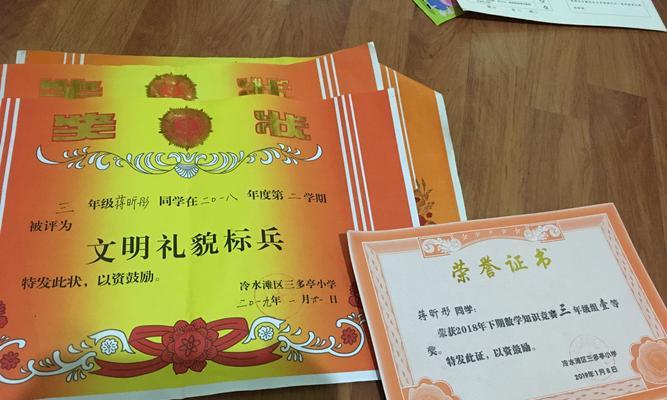 奖状
三年级蒋昕彤同学在二〇一八年度第二学期
被评为
文明礼貌标兵
特发此状，以资鼓励。
冷水滩区三多亭小学
二〇一九年一月 日
荣誉证书
蒋昕彤同学：
荣获2018年下期数学知识竞赛三年级组壹等
奖。特发此证，以资鼓励。
冷水滩区三多亭小学
2019年1月8日